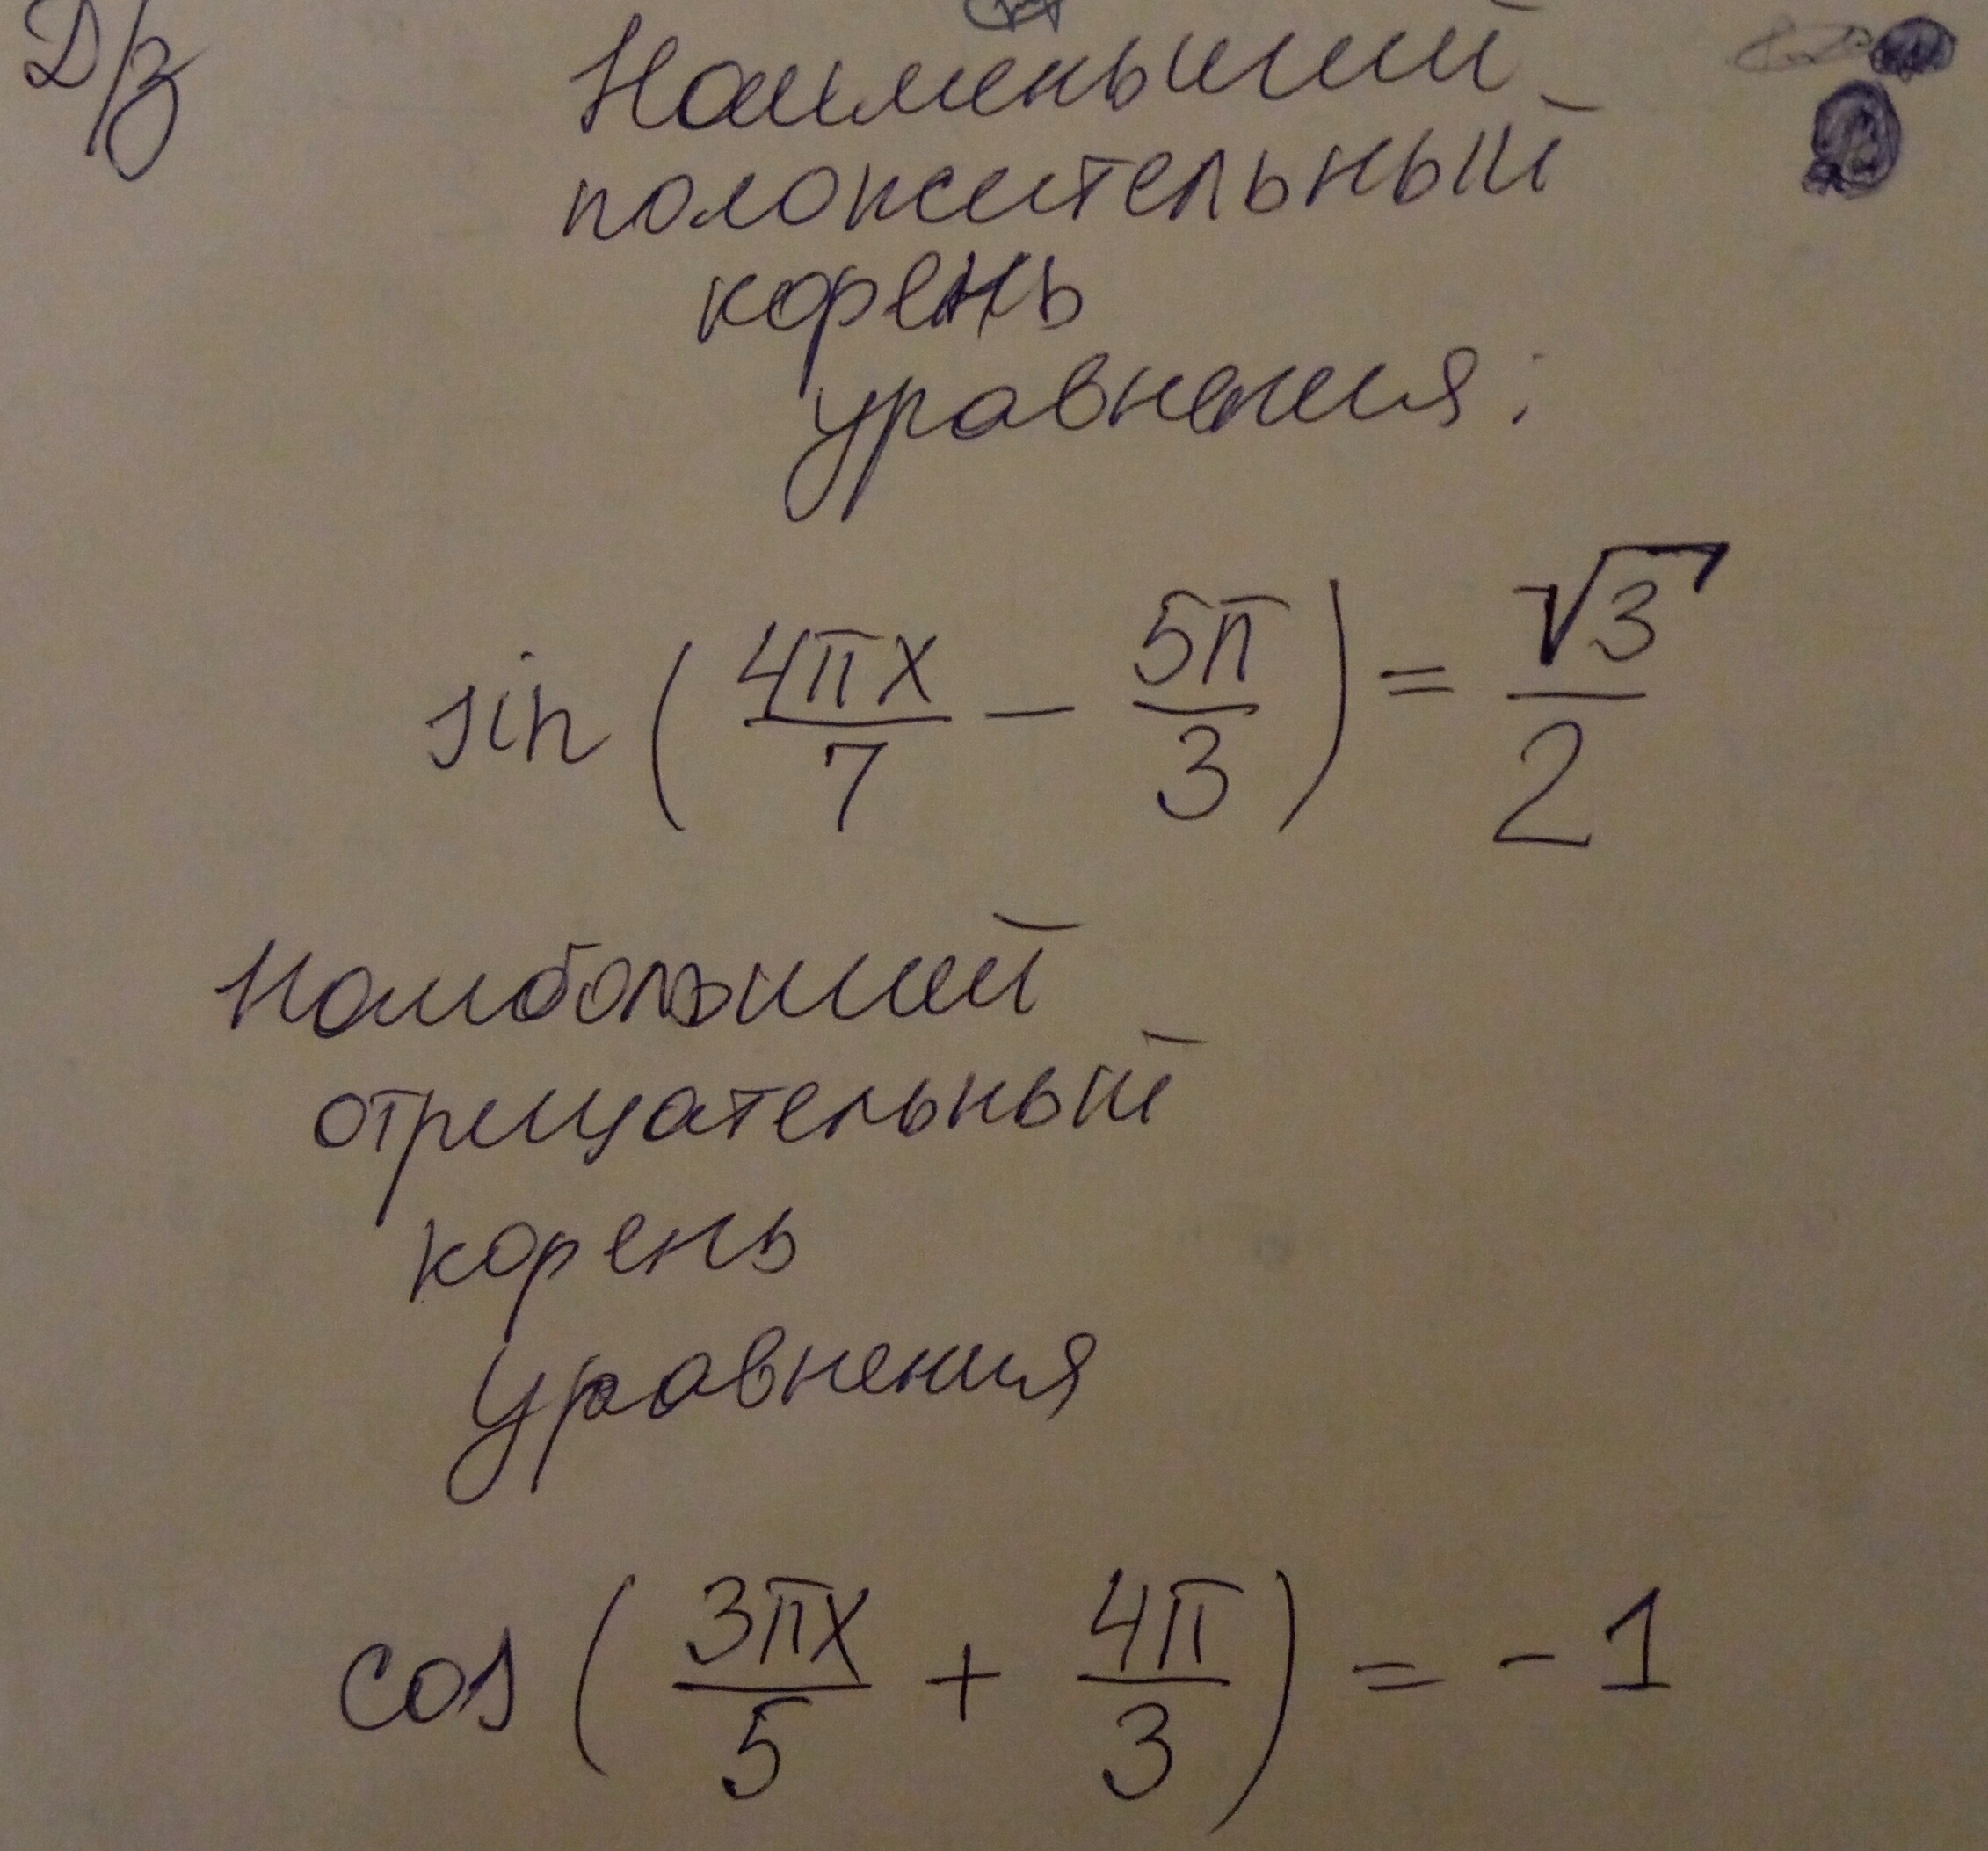 Д/з
Наименьший
положительный
корень
уравнения:
sin ( 4πx/7 − 5π/3 ) = √3/2
Наибольший
отрицательный
корень
уравнения
cos ( 3πx/5 + 4π/3 ) = - 1